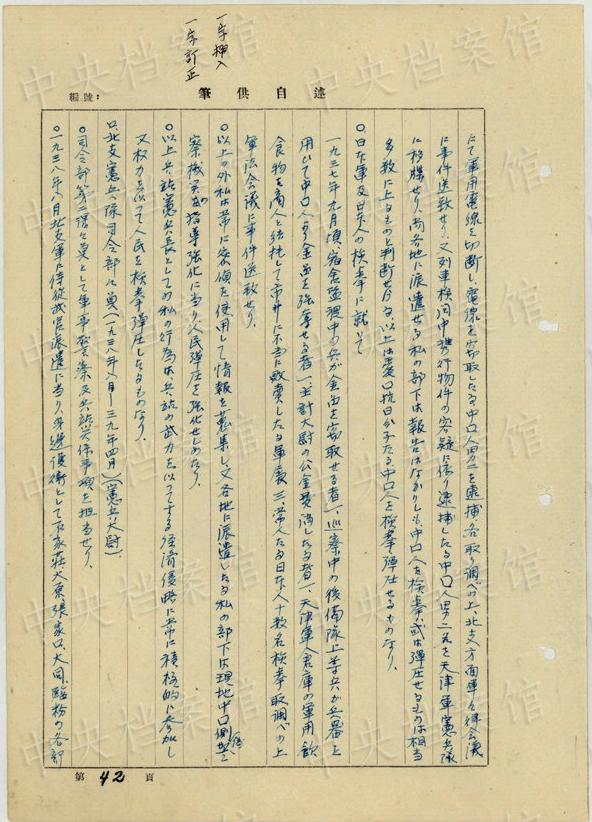 一字挿入
一字訂正
編號：
筆供自述
にて軍用電線を切断し電線を窃取したる中国人男一を逮捕、各取り調べの上、北支方面軍々律会議
に事件送致せり、又列車検問中携行物件の容疑に依り逮捕したる中国人男二名を天津軍憲兵隊
に移牒せり、尚各地に派遣せる私の部下は報告はなかりしも、中国人を検挙或は弾圧せるものは相当
多数に上るものと判断せらる、以上は愛国抗日分子たる中国人を検挙弾圧せるものなり。
〇、日本軍及日本人の検挙に就いて
一九三七年九月頃、宿舎監視中の兵が金品を窃取せる者一、巡察中の後備隊上等兵が兵器を
用いて中国人より金品を強奪せる者一、主計大尉の公金費消したる者一、天津軍人倉庫の軍用飲
食物を商人と結托して市井に不当に販売したる軍属三、常人たる日本人十数名検挙取調べの上
軍法会議に事件送致せり。
〇以上の外私は常に密偵を使用して情報を蒐集し、又各地に派遣したる私の部下は現地中国側偽警
察機関の指導強化に当り人民弾圧を強化せしめたり。
〇以上兵站憲兵長としての私の行為は兵站の武力を以てする経済侵略に常に積極的に参加し
又权力を以って人民を検挙弾圧したるものなり。
口、北支憲兵隊司令部々員（一九三八年八月—三九年四月）（憲兵大尉）
〇司令部第二課々員として軍事警察及兵站関係事項を担当せり。
〇一九三八年八月北支軍に侍従武官派遣に当り、身辺護衛として石家荘、太原、張家口、大同、臨汾の各部
第 42 頁
中央档案馆